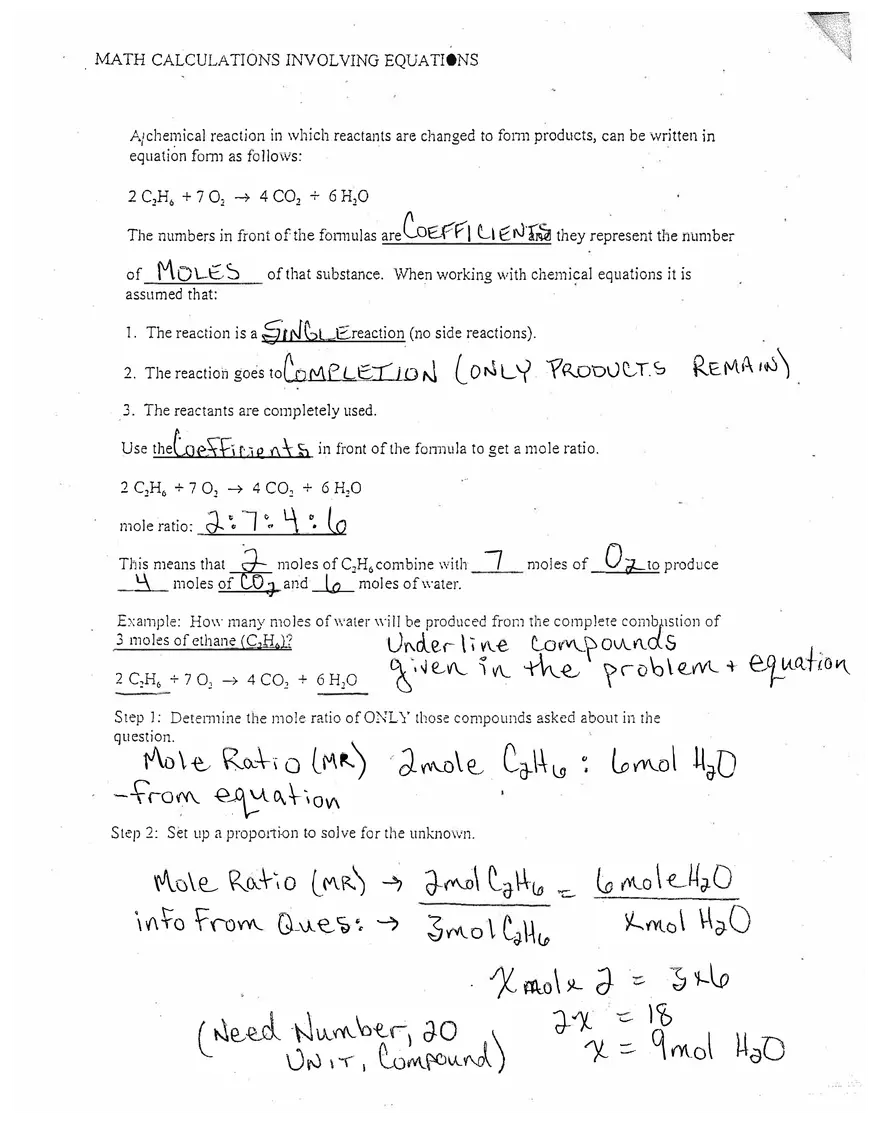 MATH CALCULATIONS INVOLVING EQUATIONS
A chemical reaction in which reactants are changed to form products, can be written in
equation form as follows:
2 C₂H₆ + 7 O₂ → 4 CO₂ + 6 H₂O
The numbers in front of the formulas are COEFFICIENTS and they represent the number
of MOLES of that substance. When working with chemical equations it is
assumed that:
1. The reaction is a SINGLE reaction (no side reactions).
2. The reaction goes to COMPLETION (ONLY PRODUCTS REMAIN)
3. The reactants are completely used.
Use the Coefficients in front of the formula to get a mole ratio.
2 C₂H₆ + 7 O₂ → 4 CO₂ + 6 H₂O
mole ratio: 2:7:4:6
This means that 2 moles of C₂H₆ combine with 7 moles of O₂ to produce
4 moles of CO₂ and 6 moles of water.
Example: How many moles of water will be produced from the complete combustion of
3 moles of ethane (C₂H₆)?
Underline compounds
given in the problem + equation
2 C₂H₆ + 7 O₂ → 4 CO₂ + 6 H₂O
Step 1: Determine the mole ratio of ONLY those compounds asked about in the
question.
Mole Ratio (MR) 2mole C₂H₆ : 6mol H₂O
-from equation
Step 2: Set up a proportion to solve for the unknown.
Mole Ratio (MR) → 2mol C₂H₆ = 6 mole H₂O
info From Ques: → 3mol C₂H₆ Xmol H₂O
X mol x 2 = 3x6
2x = 18
(Need Number, 20
UNIT, Compound)
x = 9mol H₂O